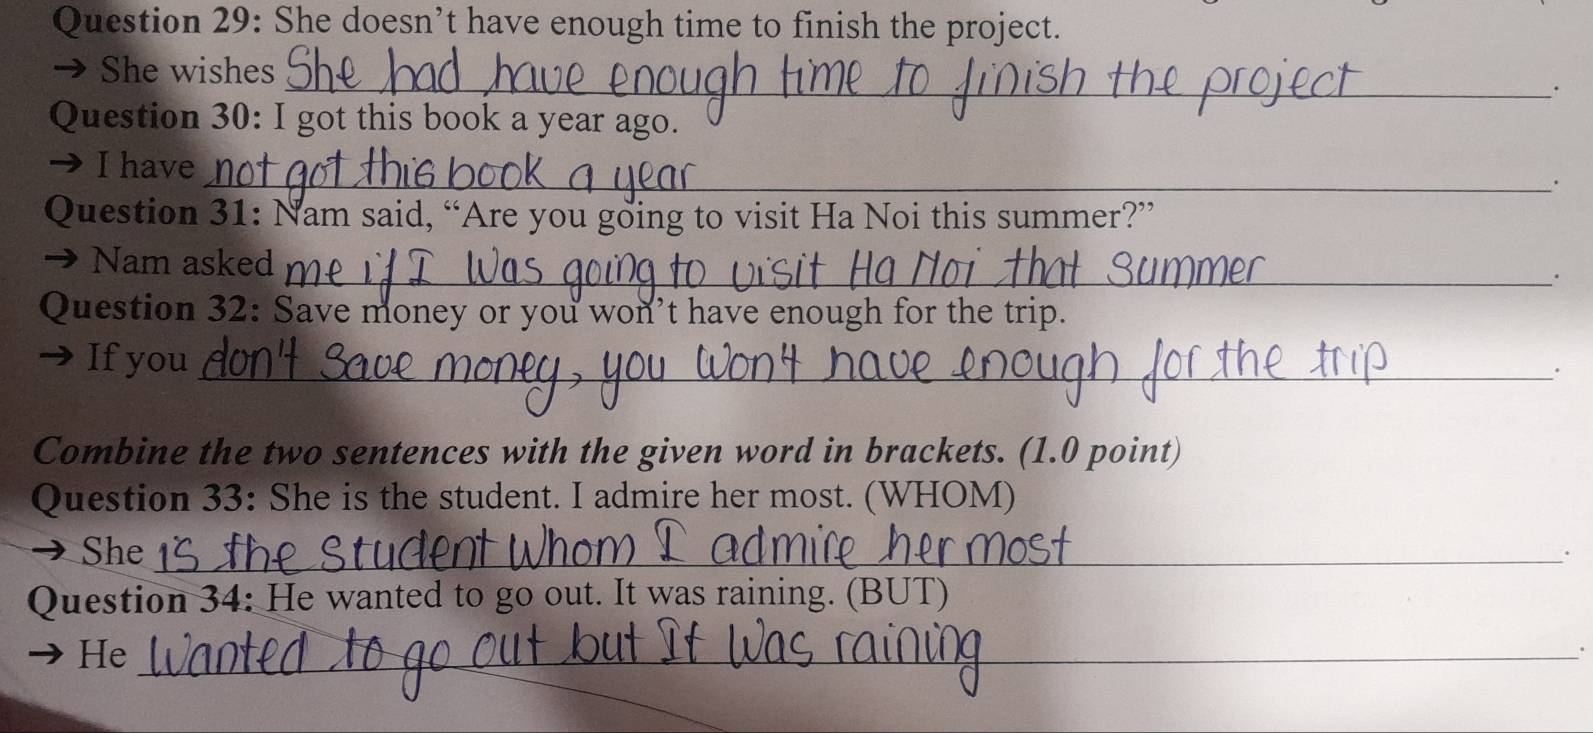 Question 29: She doesn't have enough time to finish the project.
→ She wishes She had have enough time to finish the project.
Question 30: I got this book a year ago.
→ I have not got this book a year.
Question 31: Nam said, “Are you going to visit Ha Noi this summer?”
→ Nam asked me if I was going to visit Ha Noi that summer.
Question 32: Save money or you won't have enough for the trip.
→ If you don't save money, you won't have enough for the trip.
Combine the two sentences with the given word in brackets. (1.0 point)
Question 33: She is the student. I admire her most. (WHOM)
→ She is the student whom I admire her most.
Question 34: He wanted to go out. It was raining. (BUT)
→ He wanted to go out but It was raining.